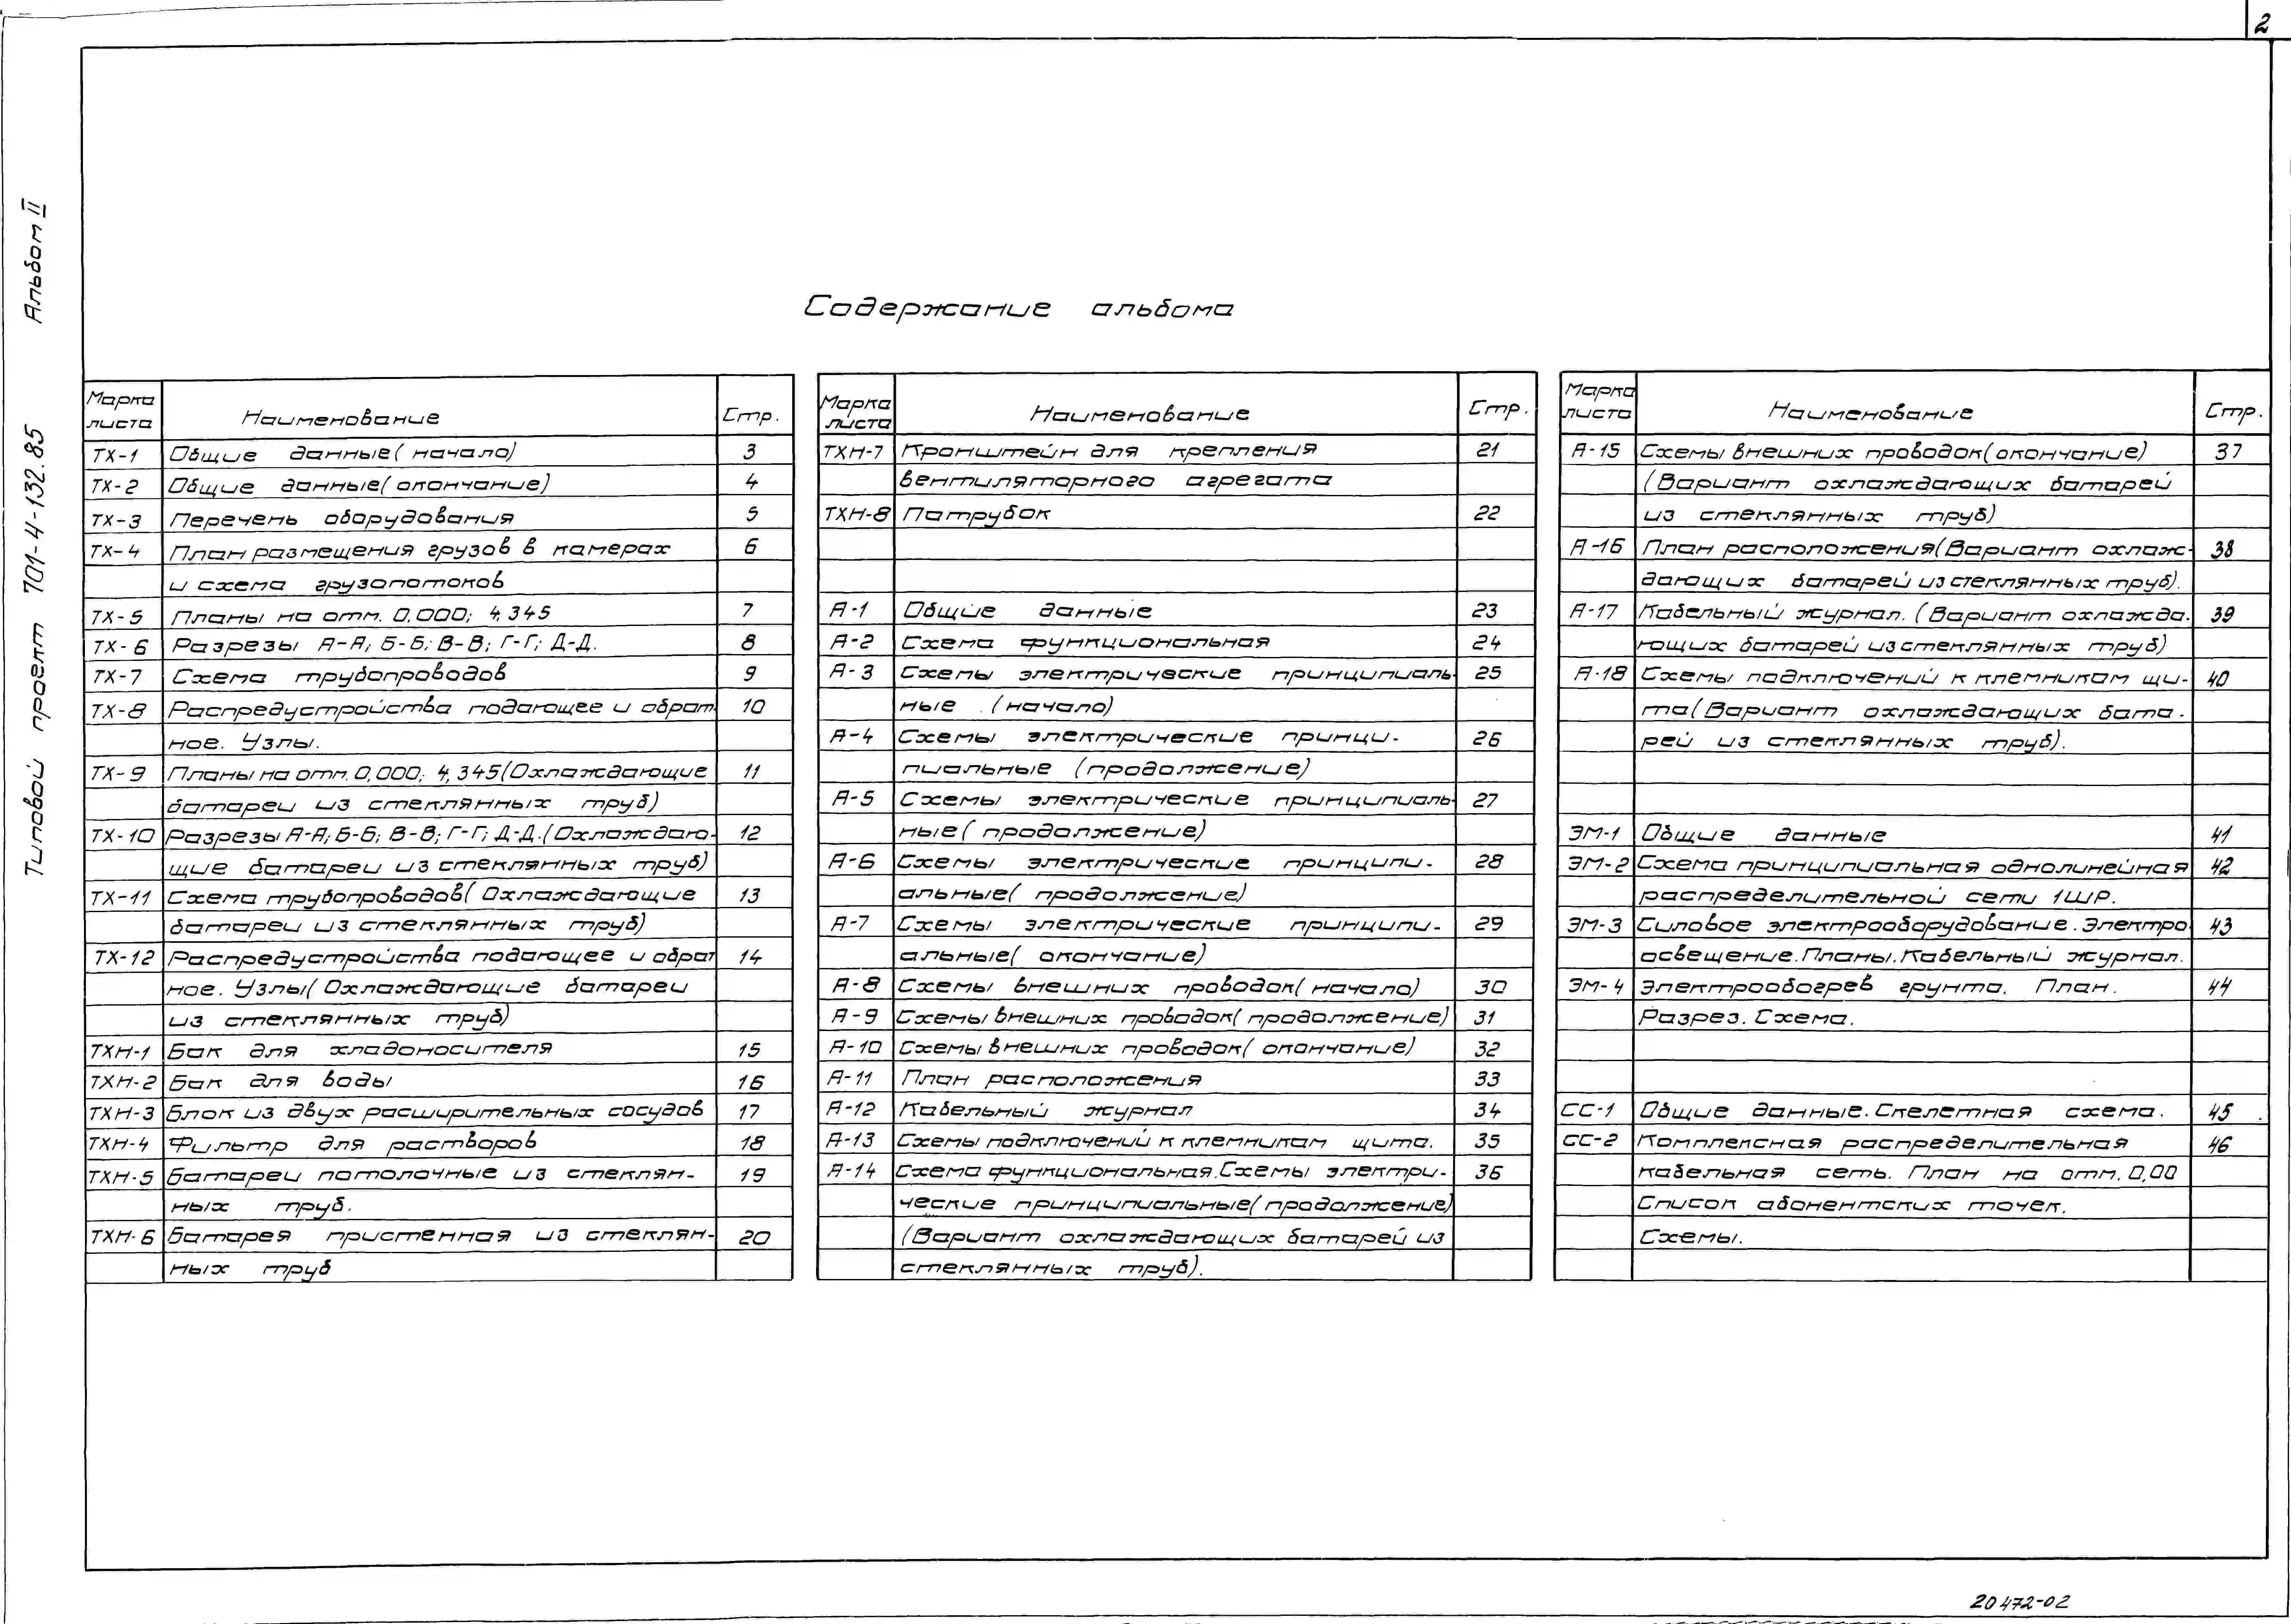 2
Альбом II
Типовой проект 701-4-132.85
Содержание альбома
Марка листа Наименование Стр.
ТХ-1 Общие данные (начало) 3
ТХ-2 Общие данные (окончание) 4
ТХ-3 Перечень оборудования 5
ТХ-4 План размещения грузов в камерах 6
и схема грузопотоков
ТХ-5 Планы на отм. 0,000; 4,345 7
ТХ-6 Разрезы А-А; Б-Б; В-В; Г-Г; Д-Д. 8
ТХ-7 Схема трубопроводов 9
ТХ-8 Распредустройства подающее и обрат 10
ное. Узлы.
ТХ-9 Планы на отм. 0,000; 4,345 (Охлаждающие 11
батареи из стеклянных труб)
ТХ-10 Разрезы А-А; Б-Б; В-В; Г-Г; Д-Д. (Охлаждаю- 12
щие батареи из стеклянных труб)
ТХ-11 Схема трубопроводов (Охлаждающие 13
батареи из стеклянных труб)
ТХ-12 Распредустройства подающее и обрат 14
ное. Узлы (Охлаждающие батареи
из стеклянных труб)
ТХН-1 Бак для хладоносителя 15
ТХН-2 Бак для воды 16
ТХН-3 Блок из двух расширительных сосудов 17
ТХН-4 Фильтр для растворов 18
ТХН-5 Батареи потолочные из стеклян- 19
ных труб.
ТХН-6 Батарея пристенная из стеклян- 20
ных труб
Марка листа Наименование Стр.
ТХН-7 Кронштейн для крепления 21
вентиляторного агрегата
ТХН-8 Патрубок 22
А-1 Общие данные 23
А-2 Схема функциональная 24
А-3 Схемы электрические принципиаль 25
ные (начало)
А-4 Схемы электрические принци- 26
пиальные (продолжение)
А-5 Схемы электрические принципиаль- 27
ные (продолжение)
А-6 Схемы электрические принципи- 28
альные (продолжение)
А-7 Схемы электрические принципи- 29
альные (окончание)
А-8 Схемы внешних проводок (начало) 30
А-9 Схемы внешних проводок (продолжение) 31
А-10 Схемы внешних проводок (окончание) 32
А-11 План расположения 33
А-12 Кабельный журнал 34
А-13 Схемы подключений к клемникам щита. 35
А-14 Схема функциональная. Схемы электри- 36
ческие принципиальные (продолжение)
(Вариант охлаждающих батарей из
стеклянных труб).
Марка листа Наименование Стр.
А-15 Схемы внешних проводок (окончание) 37
(Вариант охлаждающих батарей
из стеклянных труб)
А-16 План расположения (Вариант охлаж- 38
дающих батарей из стеклянных труб).
А-17 Кабельный журнал. (Вариант охлажда- 39
ющих батарей из стеклянных труб)
А-18 Схемы подключений к клемникам щи- 40
та (Вариант охлаждающих бата-
рей из стеклянных труб).
ЭМ-1 Общие данные 41
ЭМ-2 Схема принципиальная однолинейная 42
распределительной сети 1ШР.
ЭМ-3 Силовое электрооборудование. Электро 43
освещение. Планы. Кабельный журнал.
ЭМ-4 Электрообогрев грунта. План. 44
Разрез. Схема.
СС-1 Общие данные. Скелетная схема. 45
СС-2 Комплексная распределительная 46
кабельная сеть. План на отм. 0,00
Список абонентских точек.
Схемы.
20472-02